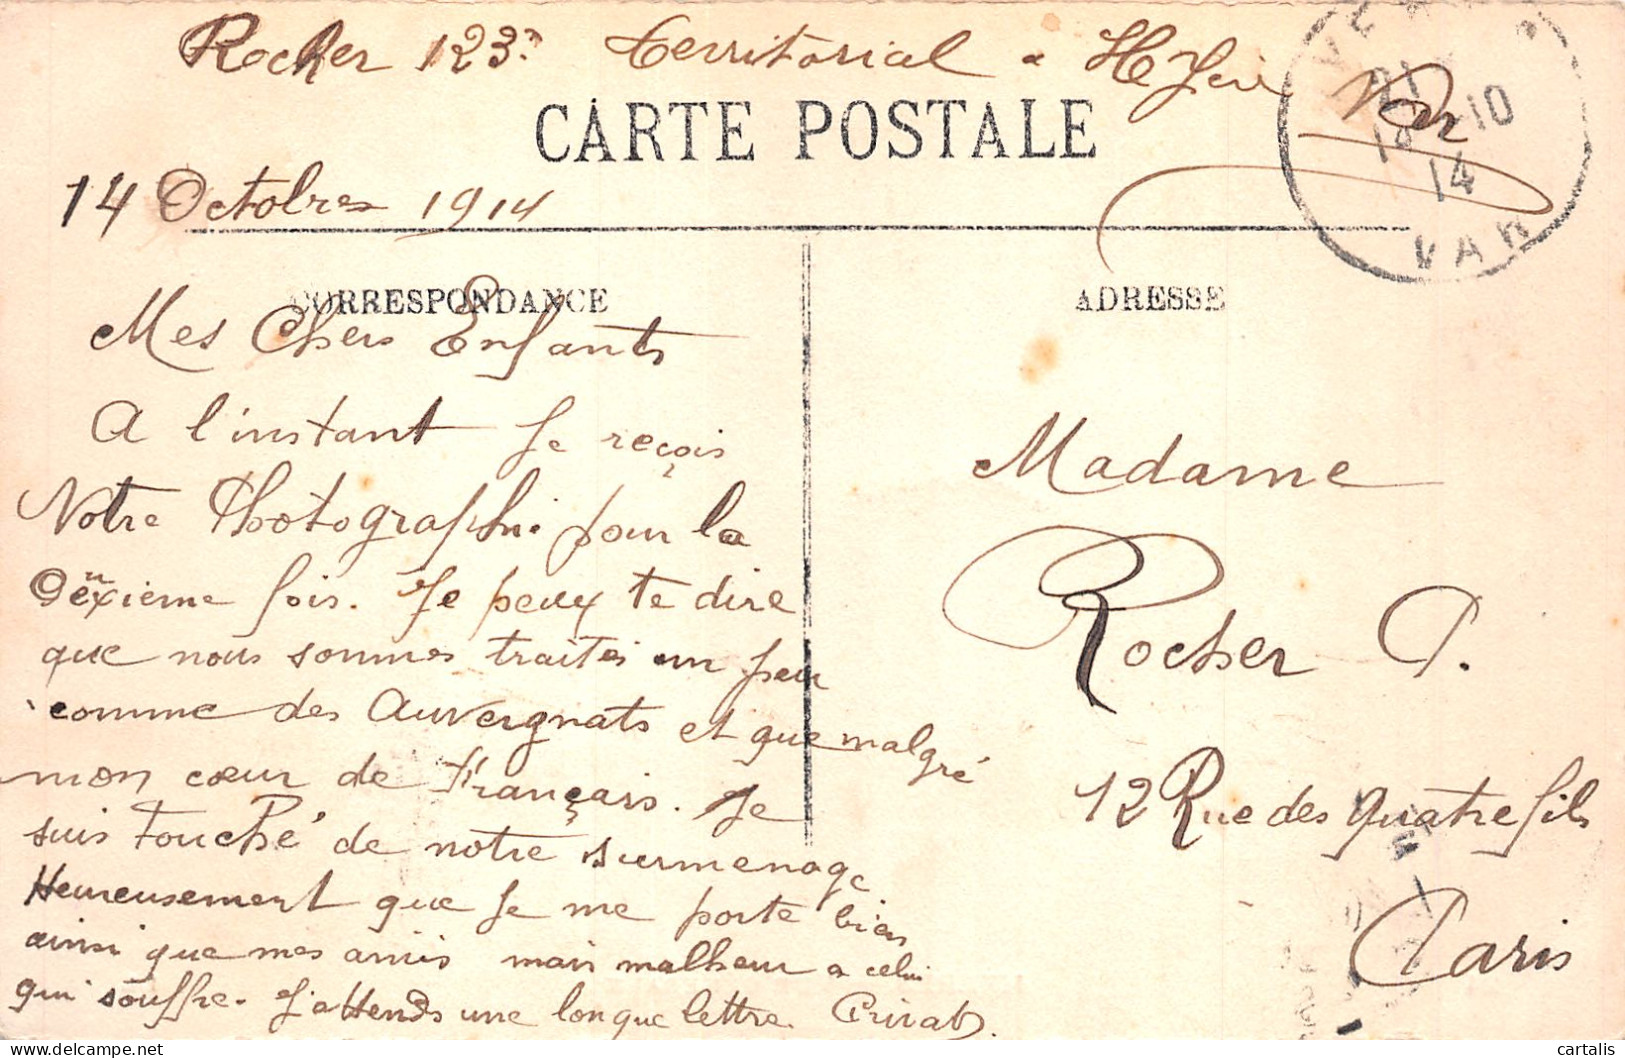 Rocher 123e Territorial a Hyère
Var
CARTE POSTALE
21
18-10
14
VAR
14 Octobre 1914
CORRESPONDANCE
ADRESSE
Mes Chers Enfants
A l'instant Je reçois
Votre Photographie pour la
Deuxième fois. Je peux te dire
que nous sommes traités un peu
comme des Auvergnats et que malgré
mon cœur de Français. Je
suis touché de notre surmenage
Heureusement que Je me porte bien
ainsi que mes amis mais malheur a celui
qui souffre. J'attends une longue lettre.
Madame
Rocher P.
12 Rue des quatre fils
Paris
cartalis